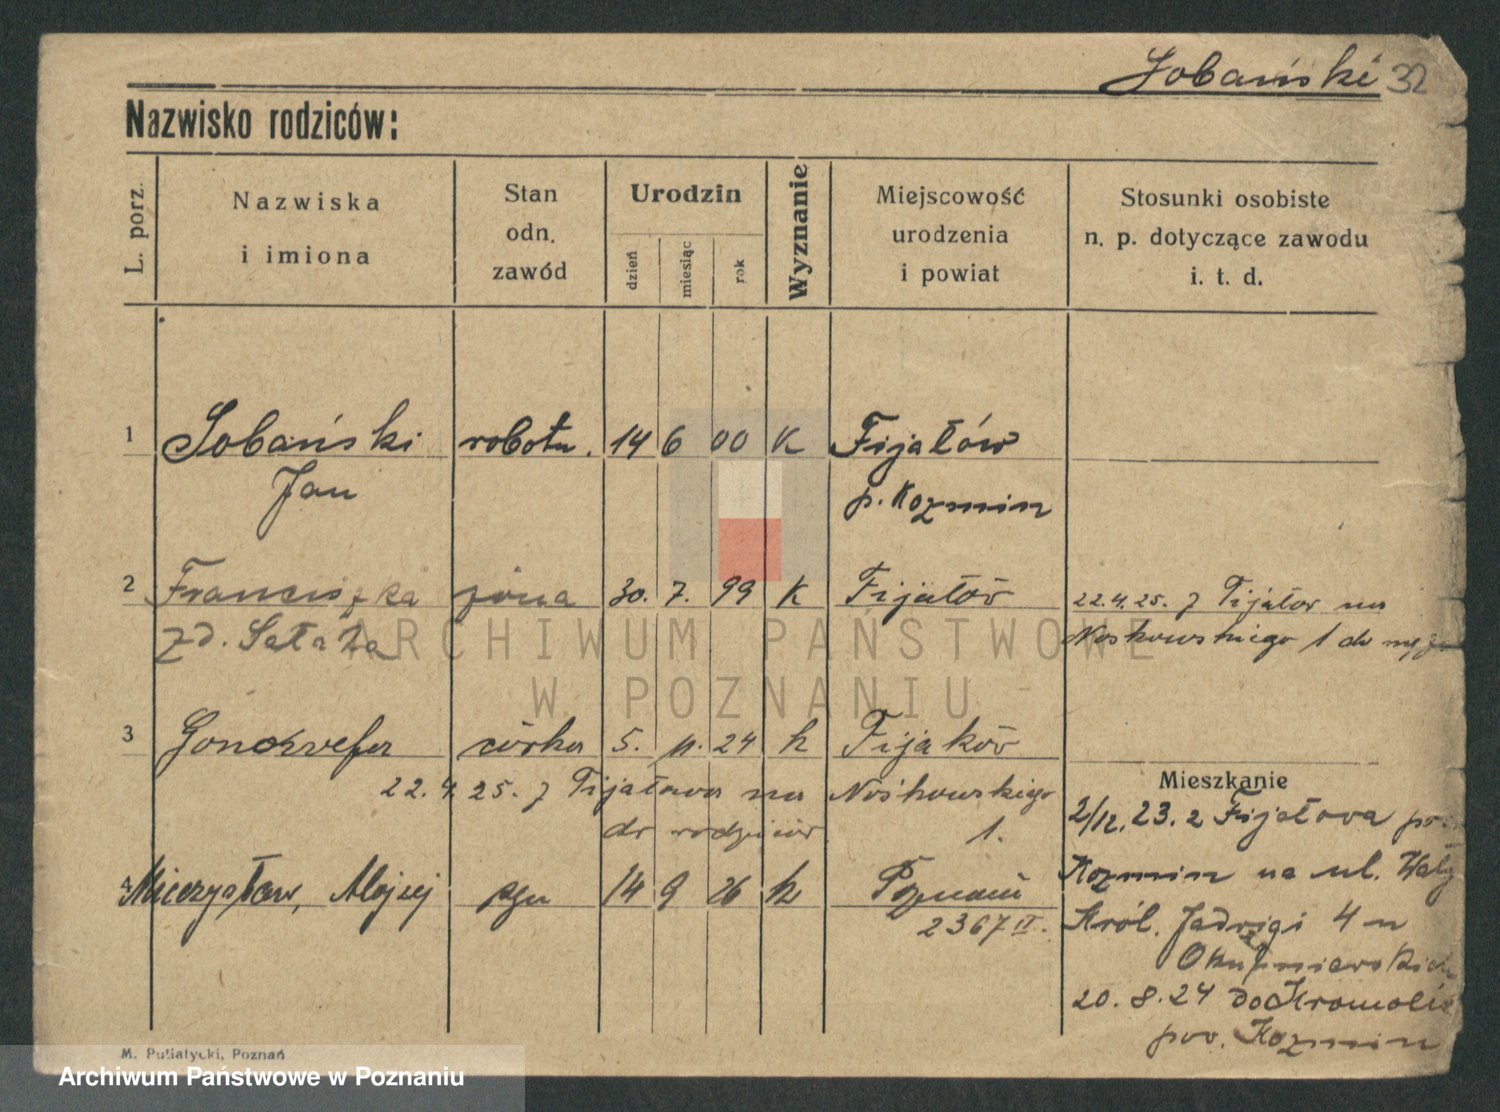 Sobański 32
Nazwisko rodziców:
L. porz.
Nazwiska
i imiona
Stan
odn.
zawód
Urodzin
dzień
miesiąc
rok
Wyznanie
Miejscowość
urodzenia
i powiat
Stosunki osobiste
n. p. dotyczące zawodu
i. t. d.
1 Sobański robotn. 14 6 00 K Fijałów
Jan p. Kozmin
2 Franciszka żona 30. 7. 99 K Fijałów 22.4.25. z Fijałow na
zd. Sałata Noskowskiego 1 do męża
3 córka 5. 11. 24 k Fijałów
22.4.25. z Fijałowa na Noskowskiego
do rodziców 1.
4 Mieczysław, Alojzy syn 14 9 26 k Poznań
2367 II.
Mieszkanie
2/12. 23. z Fijałowa
Kozmin na ul.
Król. Jadwigi 4 u
20. 8. 24 do
pow. Kozmin
M. Putiatycki, Poznań
ARCHIWUM PAŃSTWOWE
W POZNANIU
Archiwum Państwowe w Poznaniu